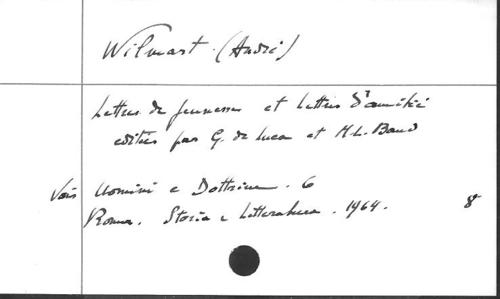 Wilmart. (André)
Lettres de jeunesse et Lettres d'amitié
editées par G. de Luca et M.L. Baud
Vois Uomini e Dottrine. 6
Roma. Storia e Letteratura. 1964. 8°